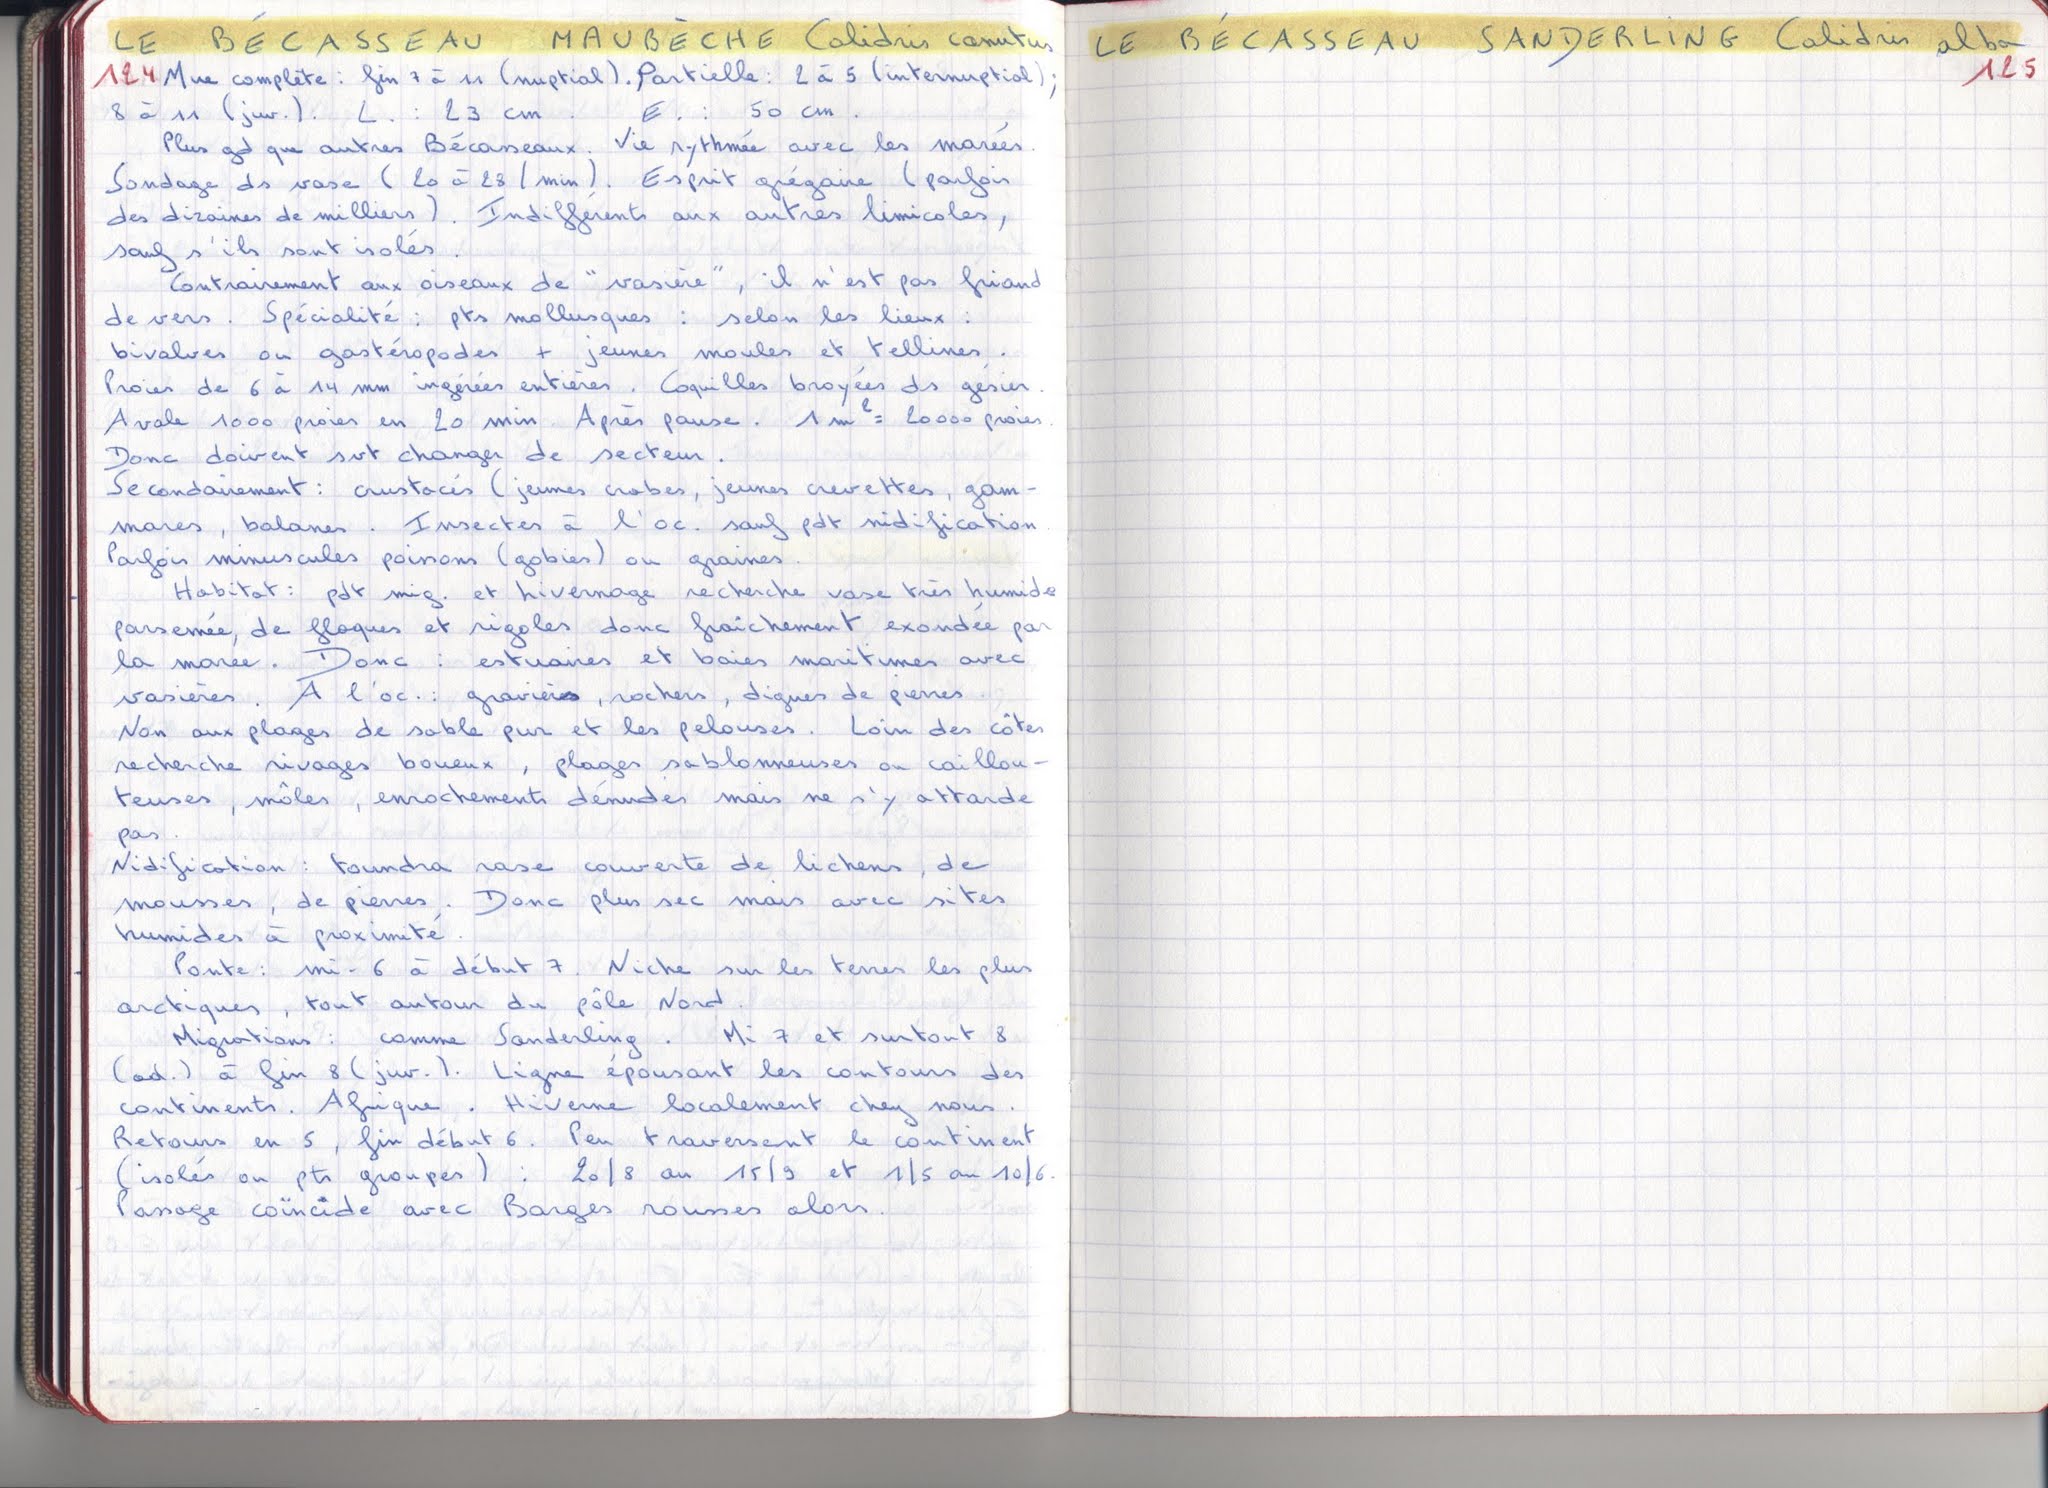 LE BÉCASSEAU MAUBÈCHE Calidris canutus
124 Mue complète : fin 7 à 11 (nuptial). Partielle : 2 à 5 (internuptial) ;
8 à 11 (juv.). L. : 23 cm . E. : 50 cm .
Plus gd que autres Bécasseaux. Vie rythmée avec les marées.
Sondage ds vase ( 20 à 28 / min ). Esprit grégaire ( parfois
des dizaines de milliers ). Indifférents aux autres limicoles,
sauf s'ils sont isolés .
Contrairement aux oiseaux de "vasière", il n'est pas friand
de vers . Spécialité : pts mollusques : selon les lieux :
bivalves ou gastéropodes + jeunes moules et tellines .
Proies de 6 à 14 mm ingérées entières . Coquilles broyées ds gésier .
Avale 1000 proies en 20 min. Après pause . 1 m² = 20000 proies.
Donc doivent svt changer de secteur .
Secondairement : crustacés ( jeunes crabes, jeunes crevettes, gam-
mares , balanes . Insectes à l'oc. sauf pdt nidification .
Parfois minuscules poissons (gobies) ou graines .
Habitat : pdt mig. et hivernage recherche vase très humide
parsemée, de flaques et rigoles donc fraîchement exondée par
la marée . Donc : estuaires et baies maritimes avec
vasières . A l'oc. : graviers , rochers , digues de pierres .
Non aux plages de sable pur et les pelouses . Loin des côtes
recherche rivages boueux , plages sablonneuses ou caillou-
teuses , môles , enrochements dénudés mais ne s'y attarde
pas .
Nidification : toundra rase couverte de lichens , de
mousses , de pierres . Donc plus sec mais avec sites
humides à proximité .
Ponte : mi-6 à début 7 . Niche sur les terres les plus
arctiques , tout autour du pôle Nord .
Migrations : comme Sanderling . Mi 7 et surtout 8
(ad.) à fin 8 (juv.). Ligne épousant les contours des
continents . Afrique . Hiverne localement chez nous .
Retours en 5 , fin début 6 . Peu traversent le continent
(isolés ou pts groupes ) : 20/8 au 15/9 et 1/5 au 10/6 .
Passage coïncide avec Barges rousses alors .
LE BÉCASSEAU SANDERLING Calidris alba
125